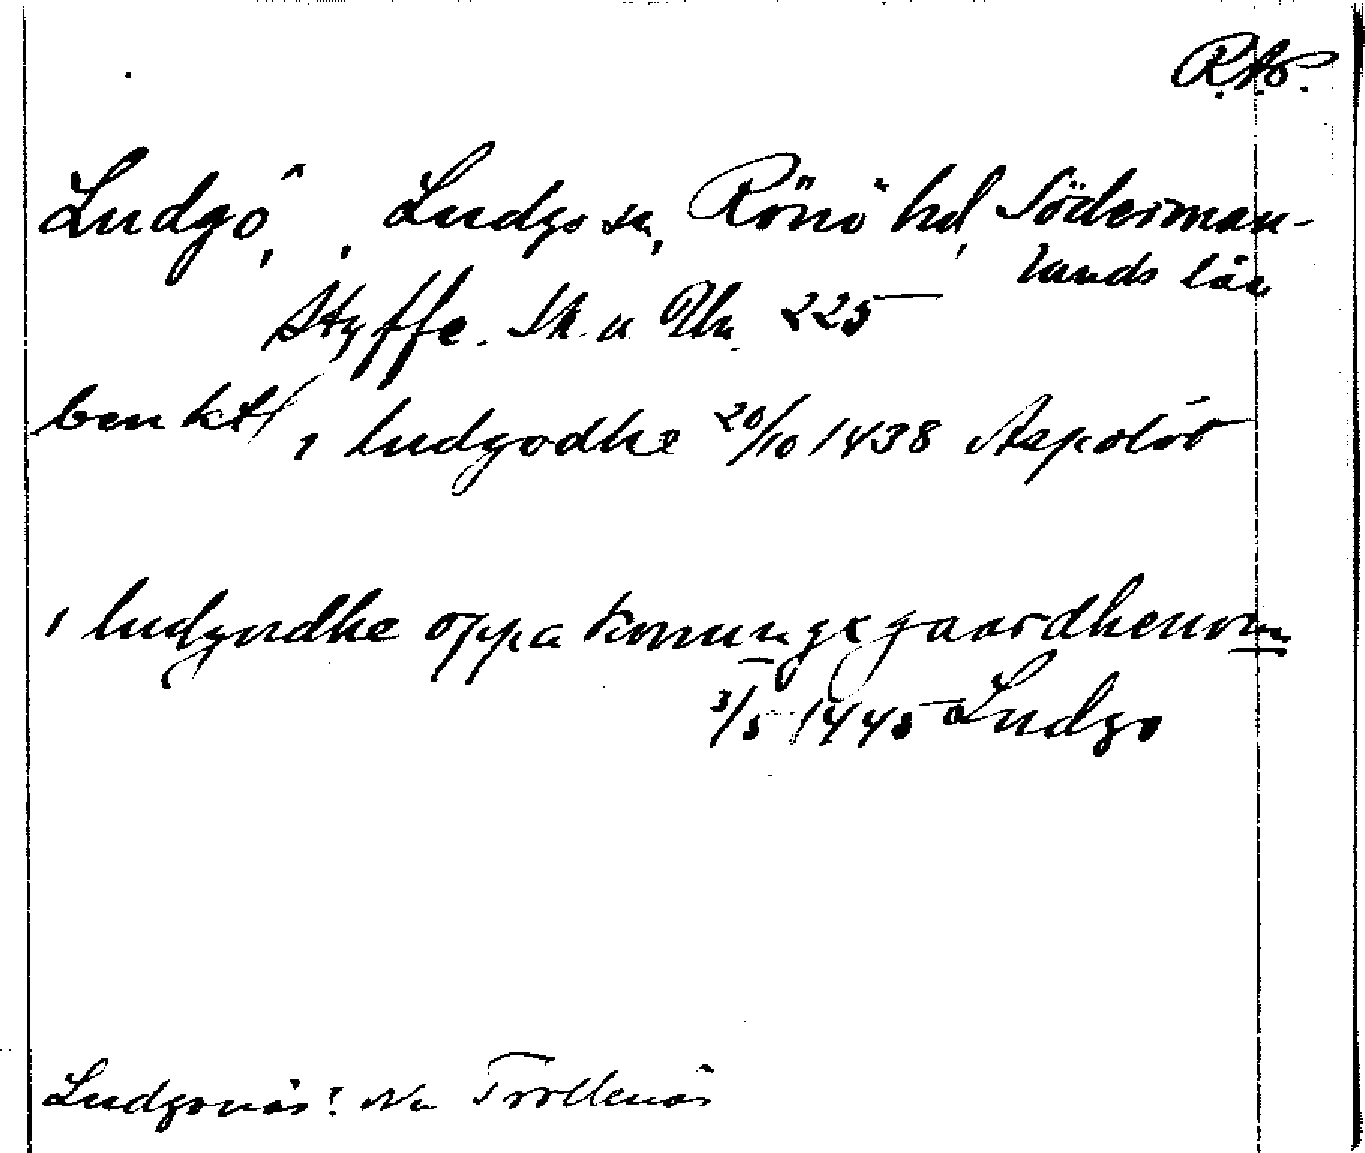 R.A.P.
Ludgö, , Ludgo sn, Rönö hd, Söderman-
lands län
Styffe. Sk. u. Un. 225
benkt i ludgodhe 20/10 1438 Aspolöt
i ludgodhe oppa konungxgaardhenom
3/5 1445 Ludgo
Ludgonäs? Nu Trollenäs